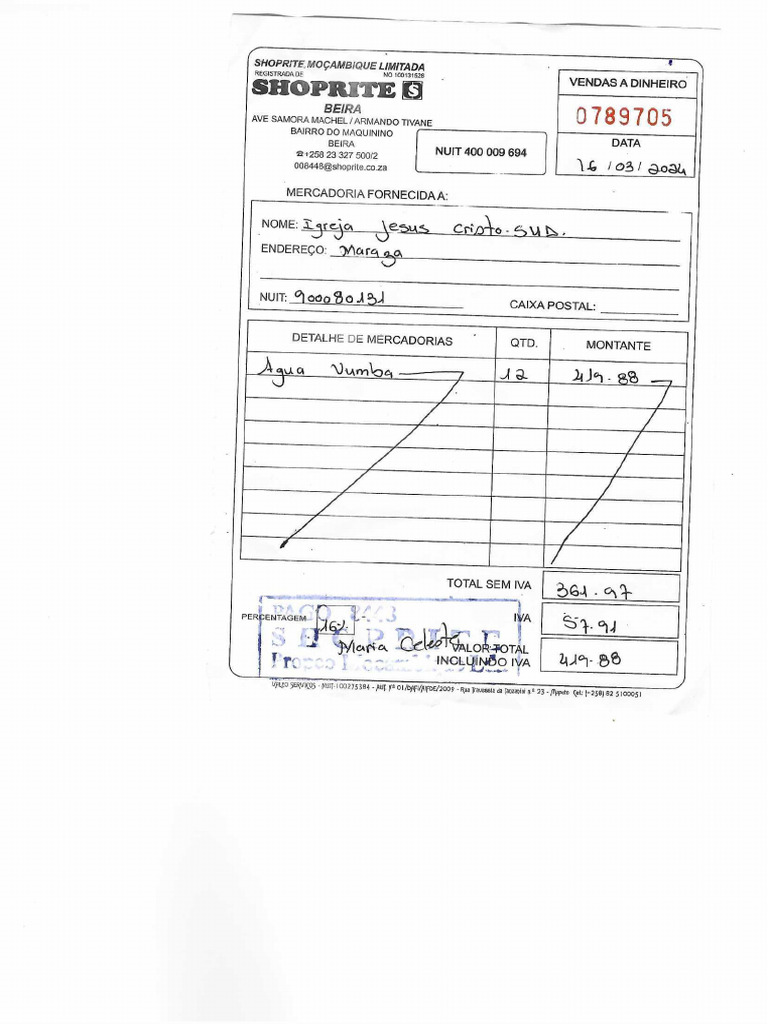 SHOPRITE, MOÇAMBIQUE LIMITADA
REGISTRADA DE NO 100131528
SHOPRITE S
BEIRA
AVE SAMORA MACHEL / ARMANDO TIVANE
BAIRRO DO MAQUININO
BEIRA
☎+258 23 327 500/2
008448@shoprite.co.za
NUIT 400 009 694
VENDAS A DINHEIRO
0789705
DATA
16 / 03 / 2024
MERCADORIA FORNECIDA A:
NOME: Igreja Jesus Cristo. SUD.
ENDEREÇO: Maraza
NUIT: 900080131 CAIXA POSTAL:
DETALHE DE MERCADORIAS QTD. MONTANTE
Água Vumba 12 419.88
TOTAL SEM IVA 361.97
PERCENTAGEM 16% IVA 57.91
PAGO
SHOPRITE
Maria Celeste
VALOR TOTAL
INCLUINDO IVA 419.88